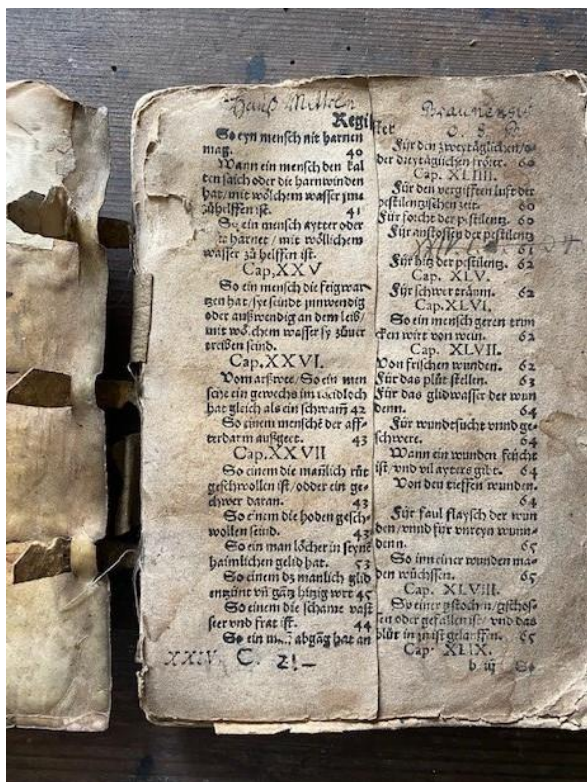 Hans
Braunensis
Register
So eyn mensch nit harnen
mag. 40
Wann ein mensch den kal
ten saich oder die harnwinden
hat / mit wölchem wasser jme
zůhelffen ist. 41
So ein mensch aytter oder
harnet / mit wöllichem
wasser zů helffen ist.
Cap, XXV
So ein mensch die feigwar
tzen hat / sye seindt jnnwendig
oder außwendig an dem leib /
mit wölchem wasser sy zůuer
treiben seind.
Cap. XXVI.
Vom arßwee / So ein men
sche ein gewechs im weidloch
hat gleich als ein schwam̃ 42
So einem menschẽ der aff-
terdarm außgeet. 43
Cap. XXVII
So einem die mañlich růt
geschwollen ist / odder ein ge-
schwer daran. 43
So einem die hoden gesch-
wollen seind. 43
So ein man löcher in seyne
haimlichen gelid hat. 53
So einem dz manlich glid
entzünt vñ gãtz hitzig wirt 45
So einem die schame vast
seer vnd frat ist. 44
So ein abgãg hat an
XXIV C. 21–
Für den zweytäglichen / o-
der dreytäglichen frörer. 60
Cap. XLIIII.
Für den vergifften luft der
pestilentzischen zeit. 60
Für forcht der pestilentz. 60
Für anstossen der pestilentz
61
Für hitz der pestilentz. 62
Cap. XLV.
Für schwer träum. 62
Cap. XLVI.
So ein mensch geren trun
cken wirt von wein. 62
Cap. XLVII.
Von frischen wunden. 62
Für das plůt stellen. 63
Für das glidwasser der wun
denn. 64
Für wundtsucht vnnd ge-
schwere. 64
Wann ein wunden feücht
ist / vnd vil ayters gibt. 64
Von den tieffen wunden.
64
Für faul flaysch der wun
den / vnnd für vnreyn wunn-
denn. 65
So inn einer wunden ma-
den wüchssen. 65
Cap. XLVIII.
So einer gstochen / gschos-
sen oder gefallen ist / vnd das
blůt in jnn ist gelauffen. 65
Cap. XLIX.
b iij So